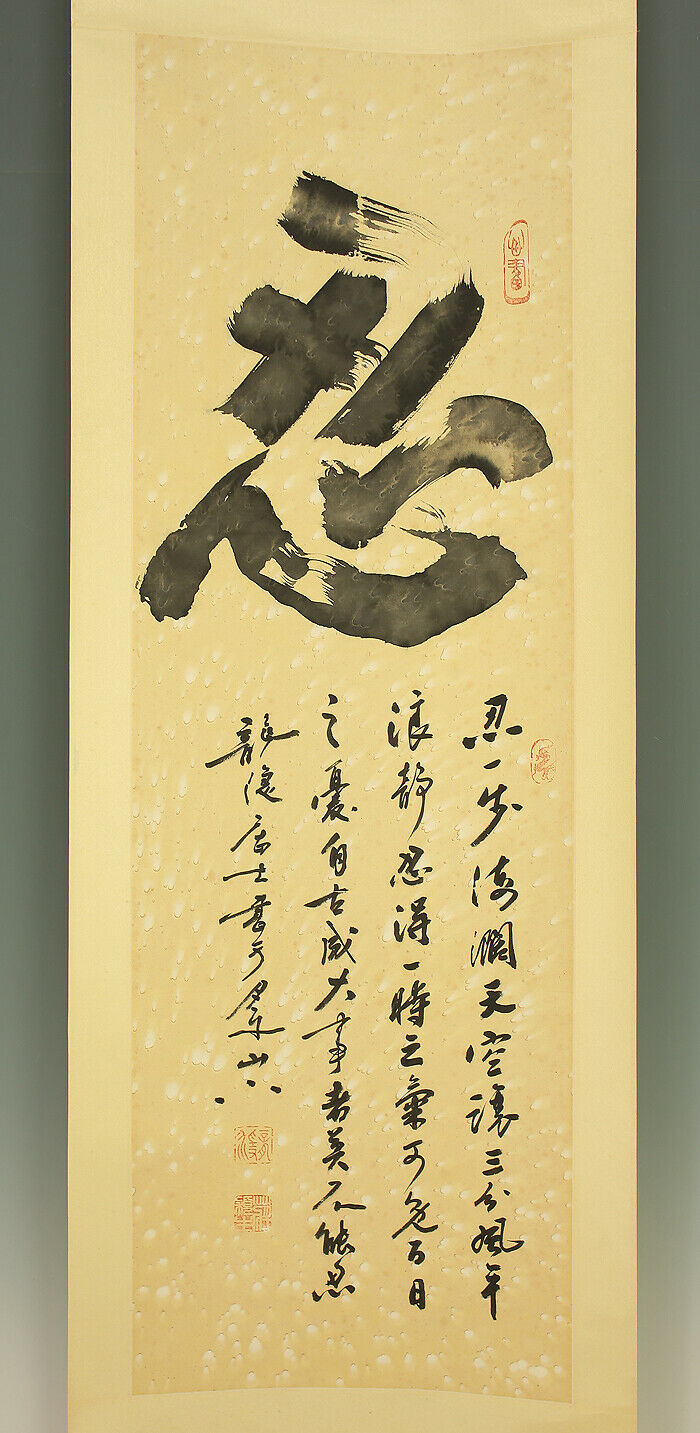 忍
忍一步海濶天空讓三分風平
浪靜忍得一時之氣可免百日
之憂自古成大事者莫不能忍
龍 居士書於 山